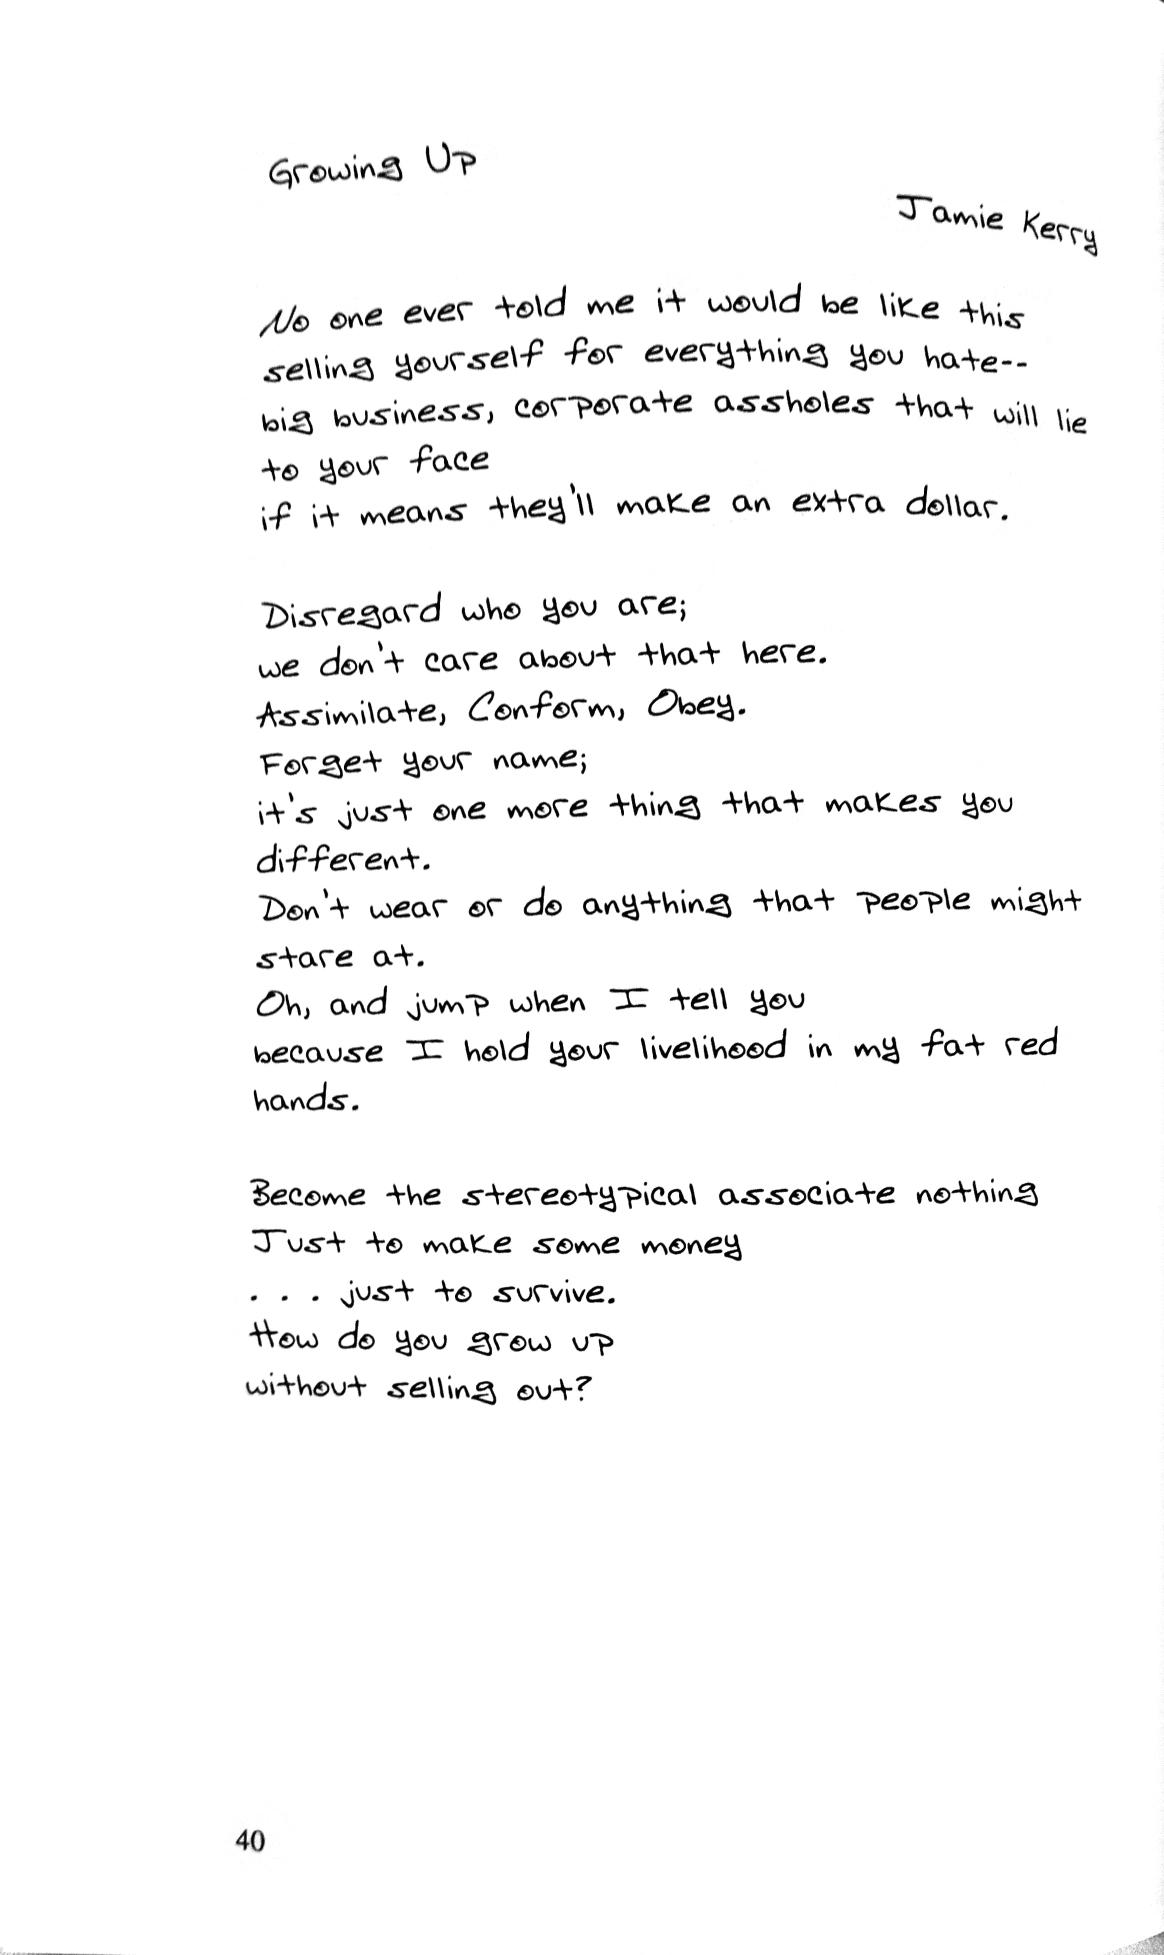 Growing Up
Jamie Kerry
No one ever told me it would be like this
selling yourself for everything you hate--
big business, corporate assholes that will lie
to your face
if it means they'll make an extra dollar.
Disregard who you are;
we don't care about that here.
Assimilate, Conform, Obey.
Forget your name;
it's just one more thing that makes you
different.
Don't wear or do anything that people might
stare at.
Oh, and jump when I tell you
because I hold your livelihood in my fat red
hands.
Become the stereotypical associate nothing
Just to make some money
. . . just to survive.
How do you grow up
without selling out?
40